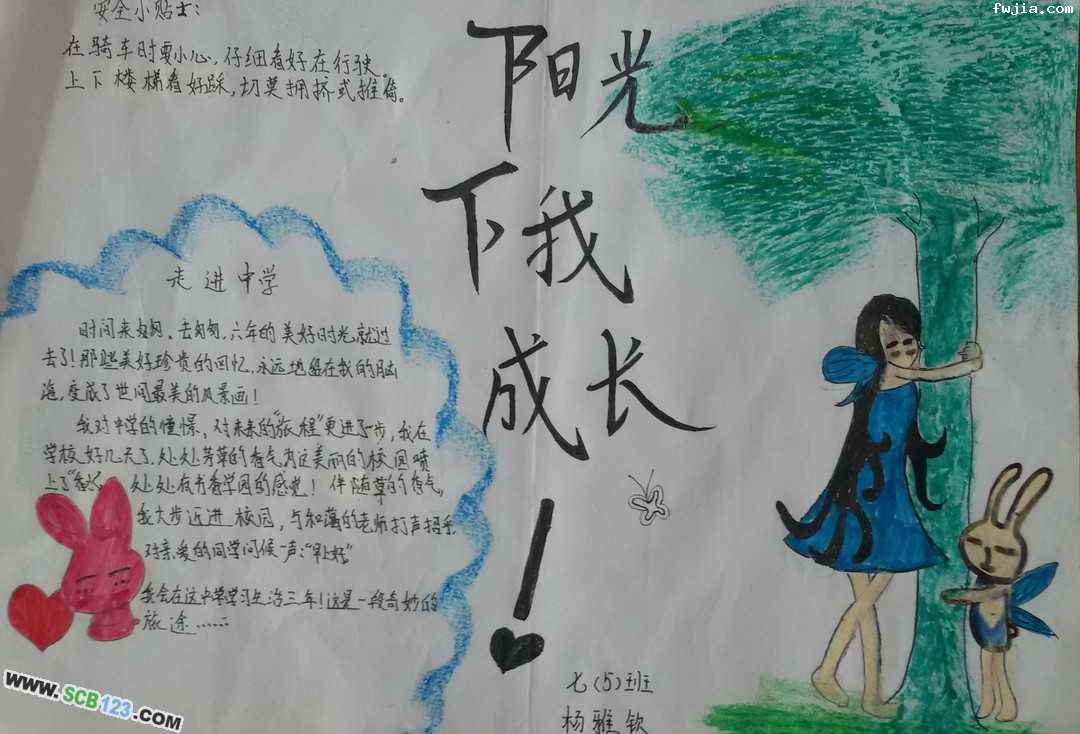 安全小贴士:
在骑车时要小心,仔细看好在行驶。
上下楼梯看好踩,切莫拥挤或推倚。
阳光
下我
成长
!
走进中学
时间来匆匆、去匆匆,六年的美好时光就过
去了!那些美好珍贵的回忆,永远地留在我的脑
海,变成了世间最美的风景画!
我对中学的憧憬,对未来的"旅程"更进了一步,我在
学校好几天了,处处芳草的香气为这美丽的校园喷
上了"香水" 处处有书香学园的感觉!伴随草的香气,
我大步迈进校园,与和蔼的老师打声招乎
对亲爱的同学问候一声:"早上好"
我会在这中学学习生活三年!这是一段奇妙的
旅途……
七(5)班
杨雅钦
www.SCB123.com
fwjia.com